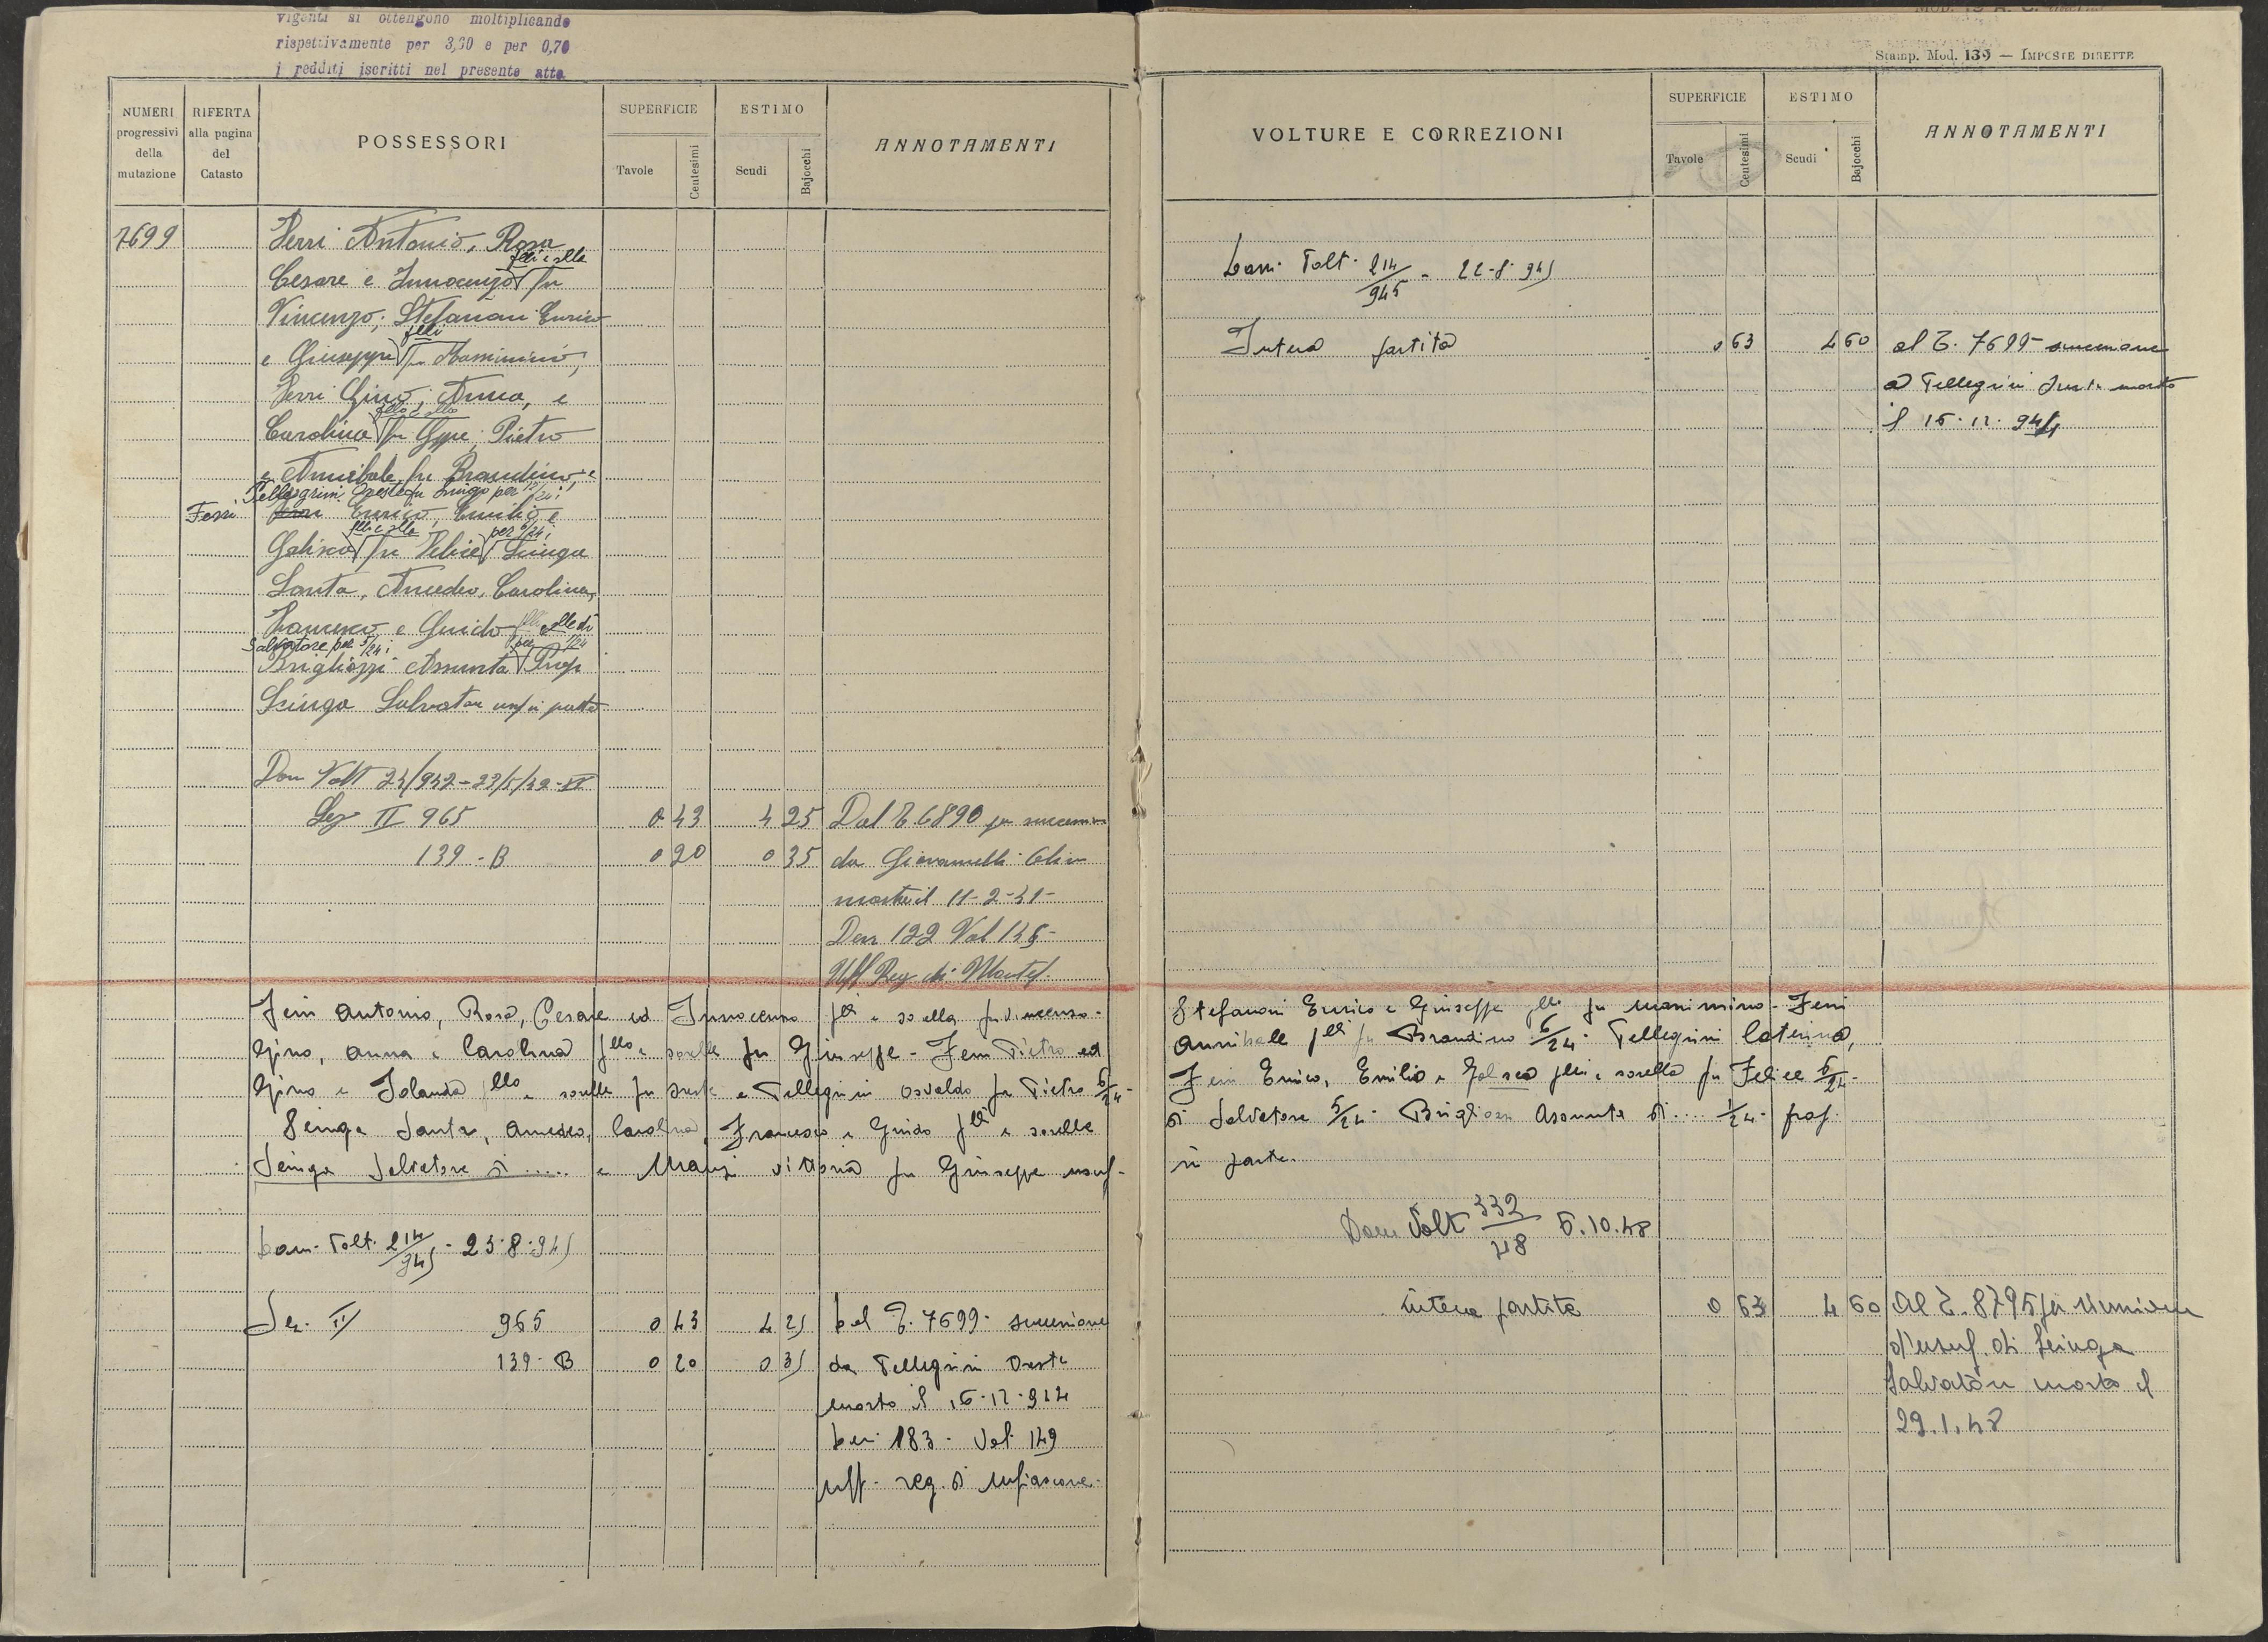 vigenti si ottengono moltiplicando
rispettivamente per 3,60 e per 0,70
i redditi iscritti nel presente atto
NUMERI progressivi della mutazione
RIFERTA alla pagina del Catasto
POSSESSORI
SUPERFICIE
Tavole
Centesimi
ESTIMO
Scudi
Bajocchi
ANNOTAMENTI
7699
Ferri Antonio, Rosa
flli e slla
Cesare e Innocenzo fu
Vincenzo; Stefanoni Enrico
flli
e Giuseppe fu Massimino;
Ferri Gino, Anna, e
fllo e slle
Carolina fu Gppe; Pietro
e Annibale fu Brandino, e
Pellegrini Oreste fu Luigi per
Ferri Enrico, Emilio e
flli e slla per 6/24;
Galisca fu Felice Scinga
Santa, Amedeo, Carolina,
Francesco e Guido flli slle di
Salvatore per 5/24; per 1/24
Brigliozzi Assunta Prop
Scinga Salvatore usuf in parte
Dom Volt 24/942-23/5/42-XX
Sez II 965 0 43 4 25 Dal T. 6890 per successione
139-B 0 20 0 35 da Giovannelli
il 11-2-41-
Den 122 Vol 146-
Uff Reg di Montef.
Ferri Antonio, Rosa, Cesare ed Innocenzo flli e sorella fu Vincenzo-
Gino, Anna e Carolina fllo e sorelle fu Giuseppe- Ferri Pietro ed
Gino e Iolanda fllo e sorelle fu Oreste e Pellegrini Osvaldo fu Pietro 6/24-
Scinga Santa, Amedeo, Carolina, Francesco e Guido flli e sorelle
Scinga Salvatore di ..... e Manzi Vittoria fu Giuseppe usuf-
Dom. Volt. 214/945 - 23-8-945
Sez. II 965 0 43 4 25 Dal T. 7699- successione
139-B 0 20 0 35 da Pellegrini Oreste
morto il 16-12-944
Den. 183- Vol. 149
Uff- reg. di Mfiascone-
Stamp. Mod. 139 — IMPOSTE DIRETTE
VOLTURE E CORREZIONI
SUPERFICIE
Tavole
Centesimi
ESTIMO
Scudi
Bajocchi
ANNOTAMENTI
Dom. Volt. 214/945 - 22-8-945
Intera partita 0 63 4 60 al T. 7699- successione
a Pellegrini Oreste morto
il 16-12-944
Stefanoni Enrico e Giuseppe flli fu Massimino- Ferri
Annibale flli fu Brandino 6/24- Pellegrini Caterina,
Ferri Enrico, Emilio e Galisca flli e sorella fu Felice 6/24-
di Salvatore 5/24- Brigliozzi Assunta di .... 1/24- prop.
in parte.
Dom Volt 332/48 5.10.48
intera partita 0 63 4 60 Al T. 8795 per riunione
d'usuf. di Scinga
Salvatore morto il
29.1.48